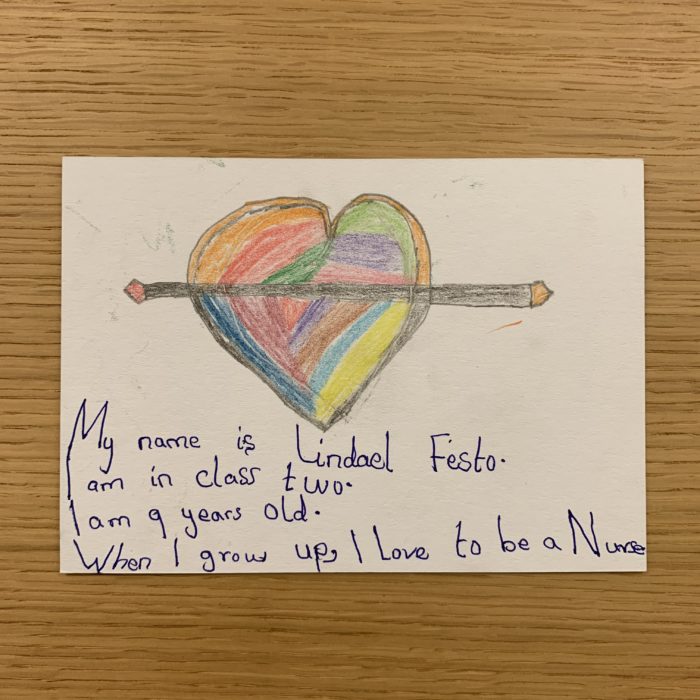 My name is Lindael Festo.
I am in class two.
I am 9 years old.
When I grow up, I Love to be a Nurse